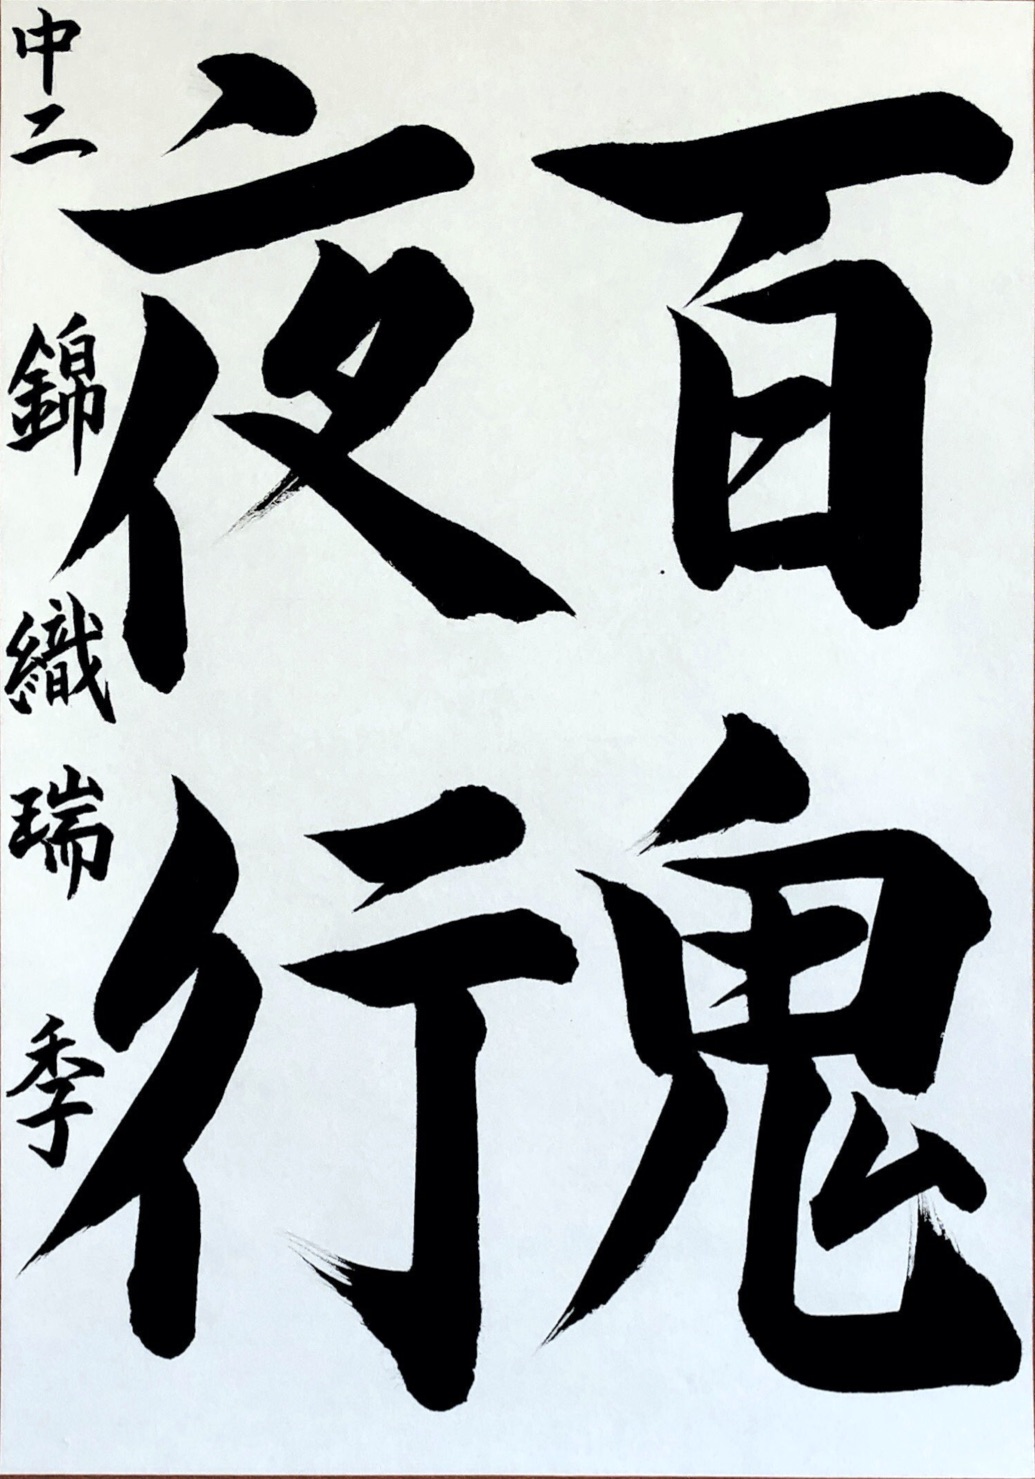 百鬼
夜行
中二 錦織瑞季